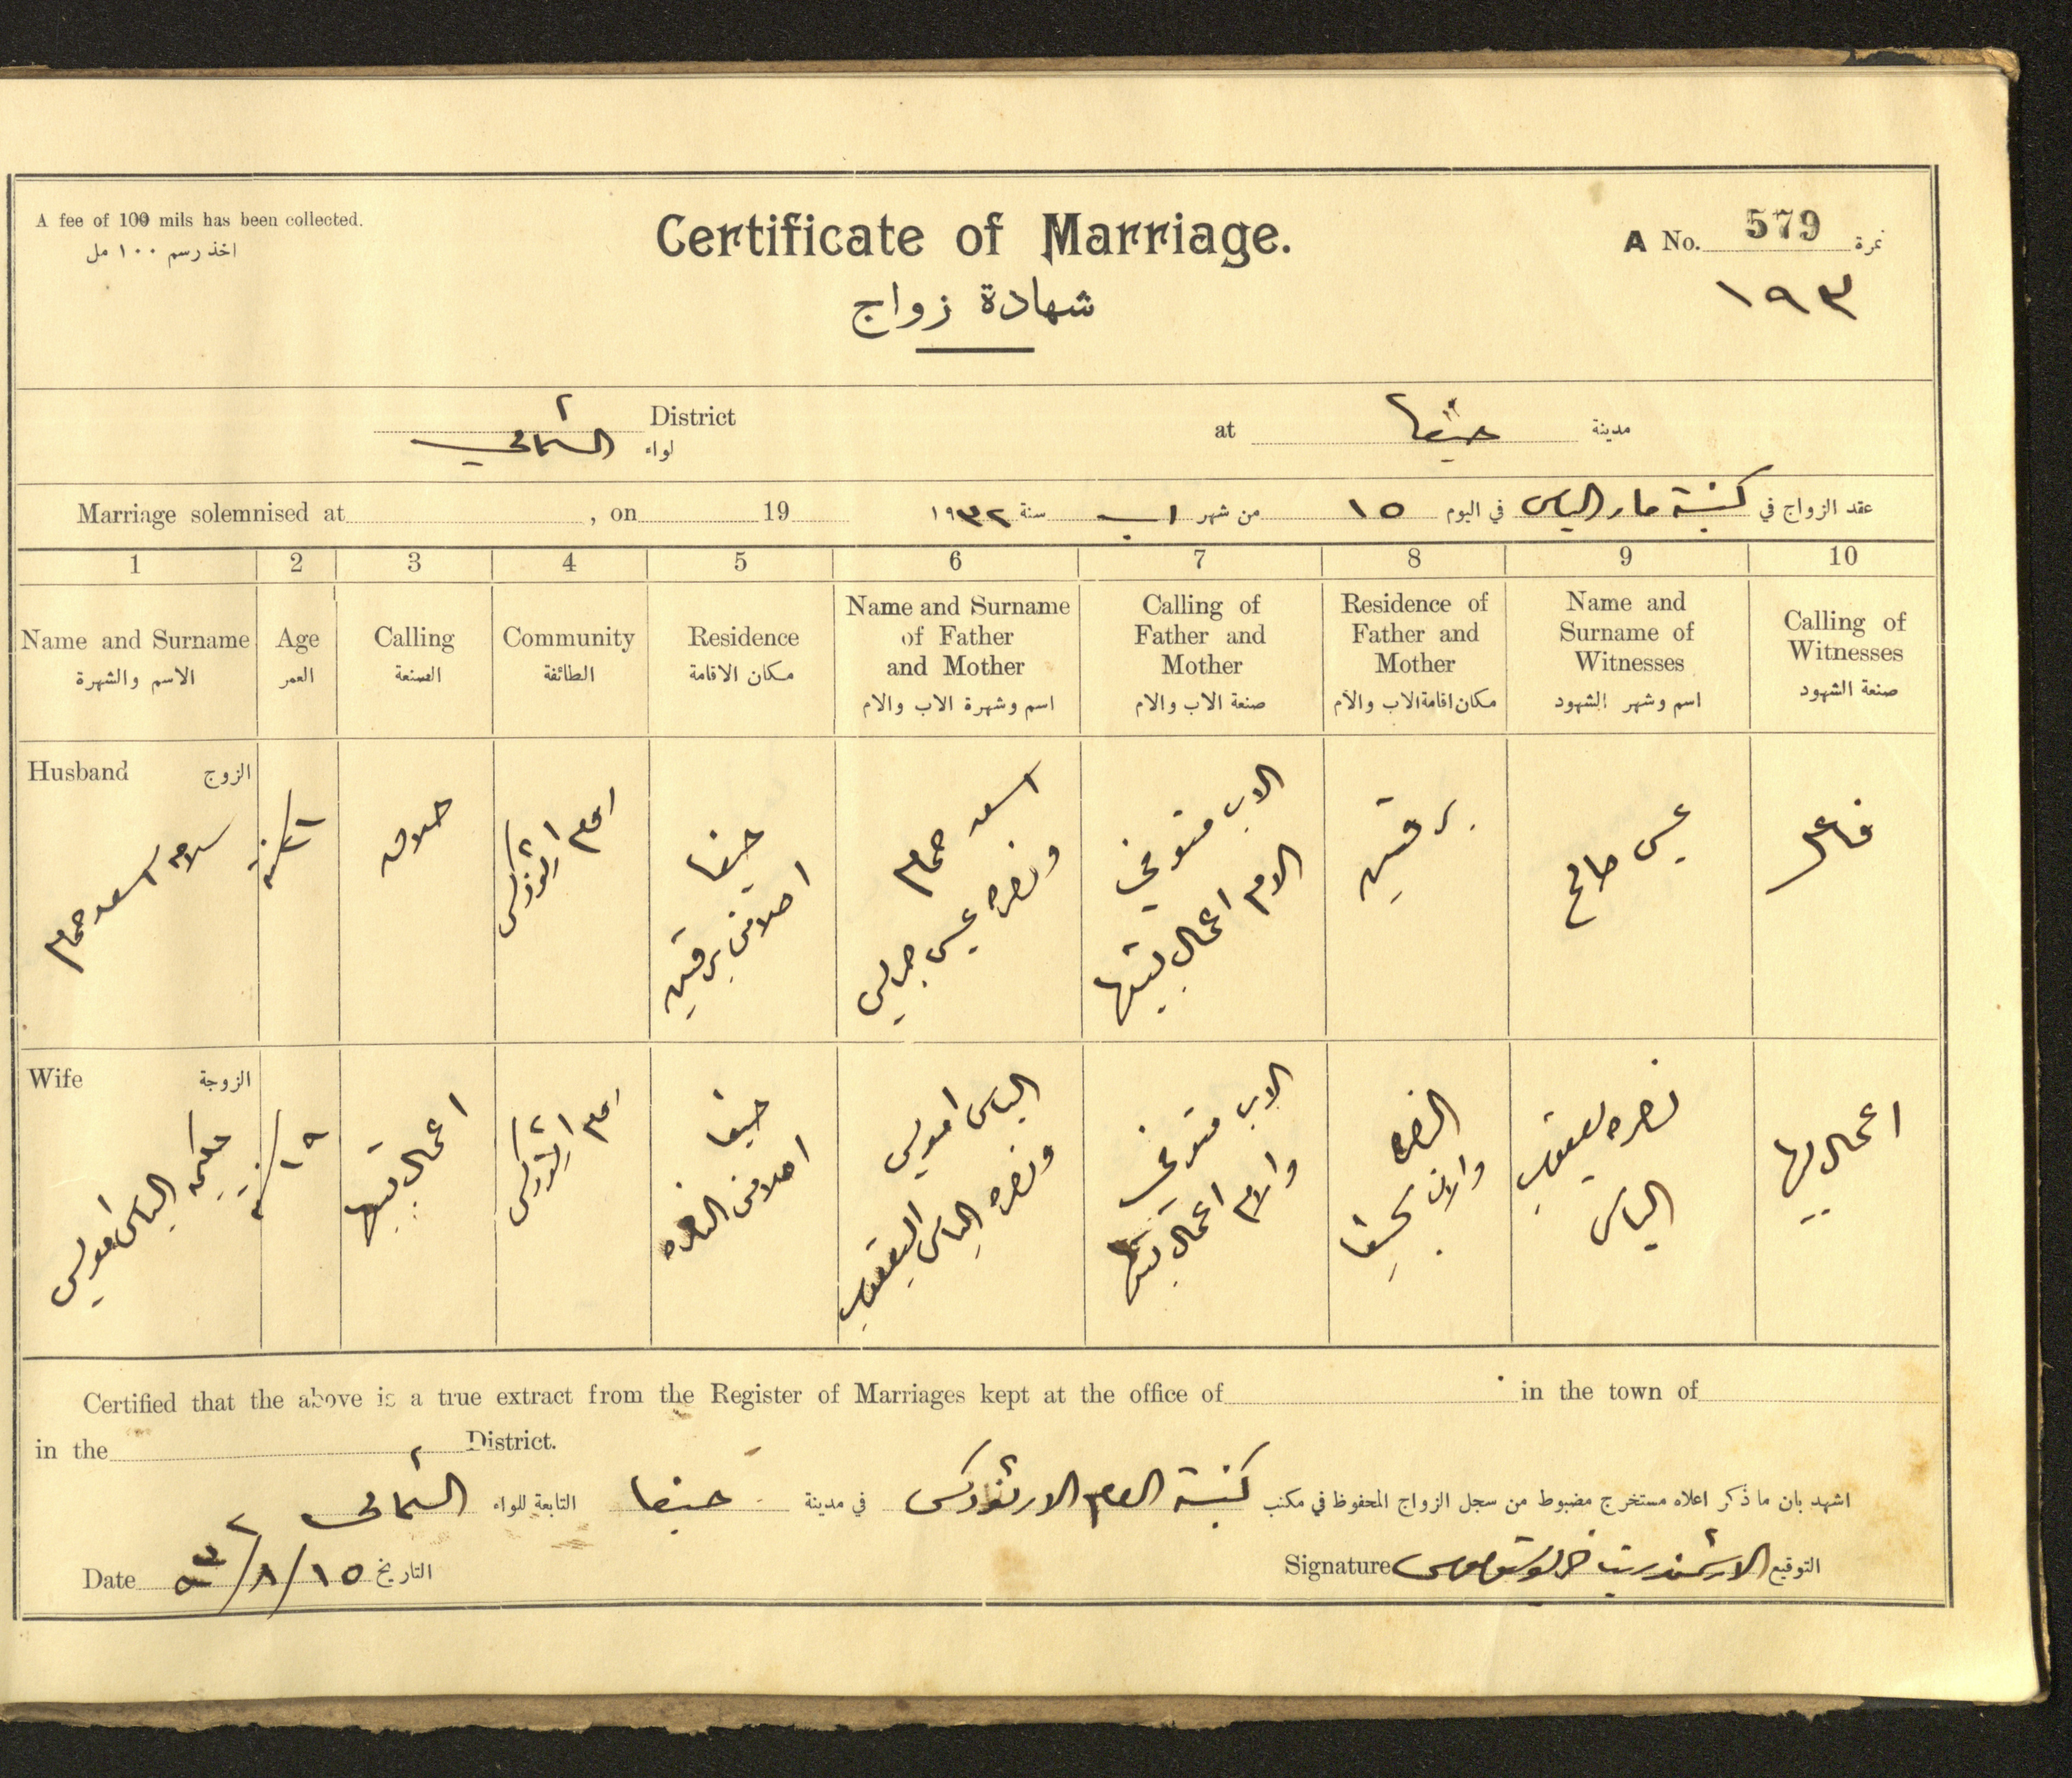 A fee of 100 mils has been collected.
اخذ رسم ١٠٠ مل
Certificate of Marriage.
شهادة زواج
A No. 579 نمرة
١٩٣
District
لواء الشمالي
at حيفا مدينة
Marriage solemnised at , on 19
عقد الزواج في كنيسة مار الياس في اليوم ١٥ من شهر اب سنة ١٩٣٢
1 2 3 4 5 6 7 8 9 10
Name and Surname
الاسم والشهرة
Age
العمر
Calling
الصنعة
Community
الطائفة
Residence
مكان الاقامة
Name and Surname
of Father
and Mother
اسم وشهرة الاب والام
Calling of
Father and
Mother
صنعة الاب والام
Residence of
Father and
Mother
مكان اقامة الاب والام
Name and
Surname of
Witnesses
اسم وشهر الشهود
Calling of
Witnesses
صنعة الشهود
Husband الزوج
سلامه اسعد حمام
حلاق
روم ارثوذكس
حيفا
اصلا من برقين
اسعد حمام
ونصره عيسى
الاب متوفي
الام اعمال بيتها
برقين
عيسى صالح
فاعل
Wife الزوجة
الياس
١٩ سنة
اعمال بيتها
روم ارثوذكس
حيفا
اصلا من الناصره
الياس
ونصره الياس اليعقوب
الاب متوفي
والام اعمال بيتها
الناصره
والان بحيفا
نصره يعقوب
الياس
اعمال بيتها
Certified that the above is a true extract from the Register of Marriages kept at the office of in the town of
in the District.
اشهد بان ما ذكر اعلاه مستخرج مضبوط من سجل الزواج المحفوظ في مكتب كنيسة الروم الارثوذكس في مدينة حيفا التابعة للواء الشمالي
Date ١٥/٨/٣٢ التاريخ
Signature الارشمندريت التوقيع